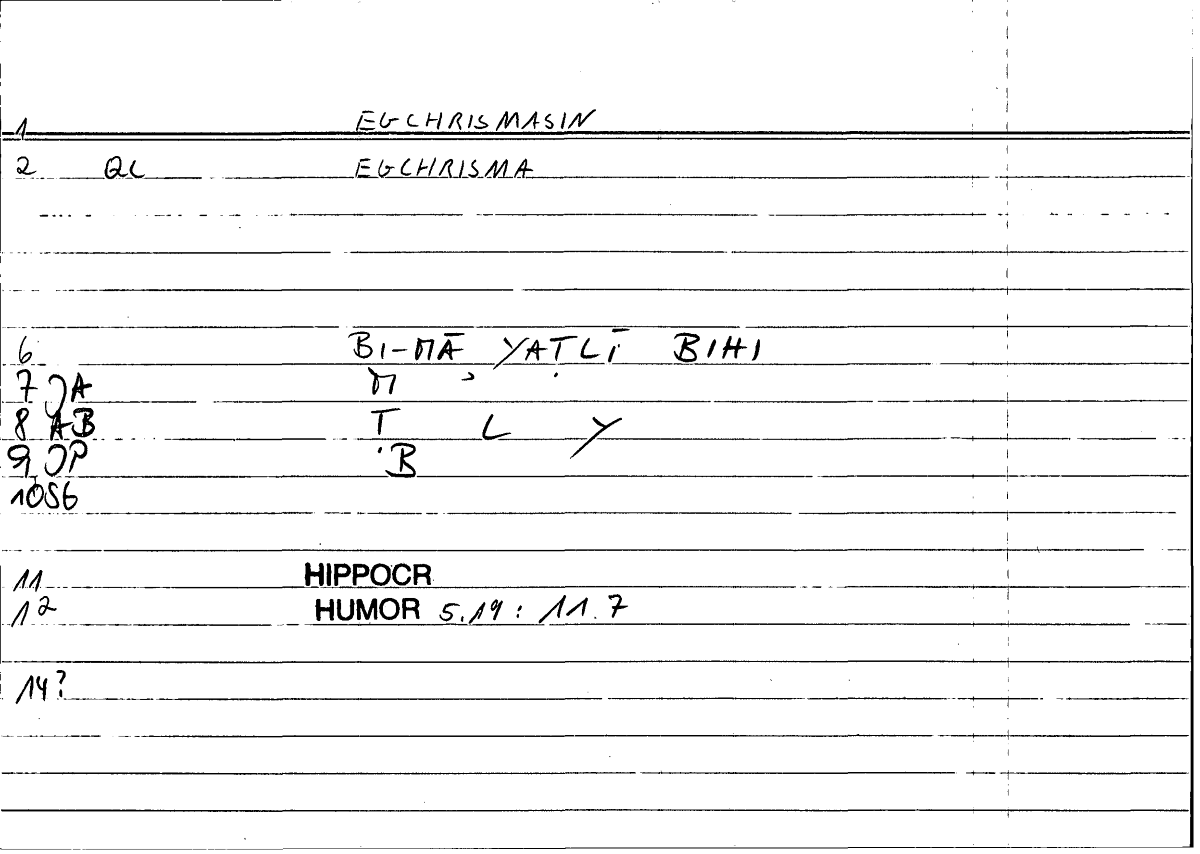 1 EGCHRISMASIN
2 QL EGCHRISMA
6 BI-MĀ YAṬLĪ BIHI
7 JA M ʾ
8 AB Ṭ L Y
9 JP B
10 SG
11 HIPPOCR
12 HUMOR 5.19: 11.7
14?